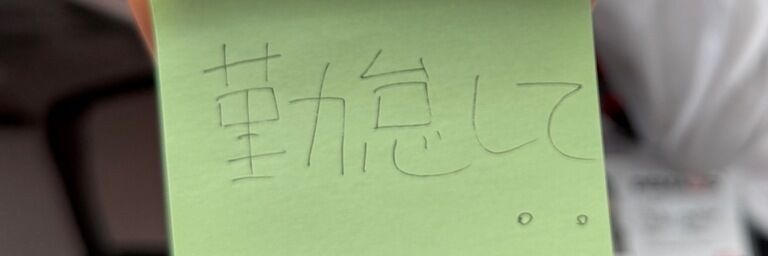 勤怠して
。。